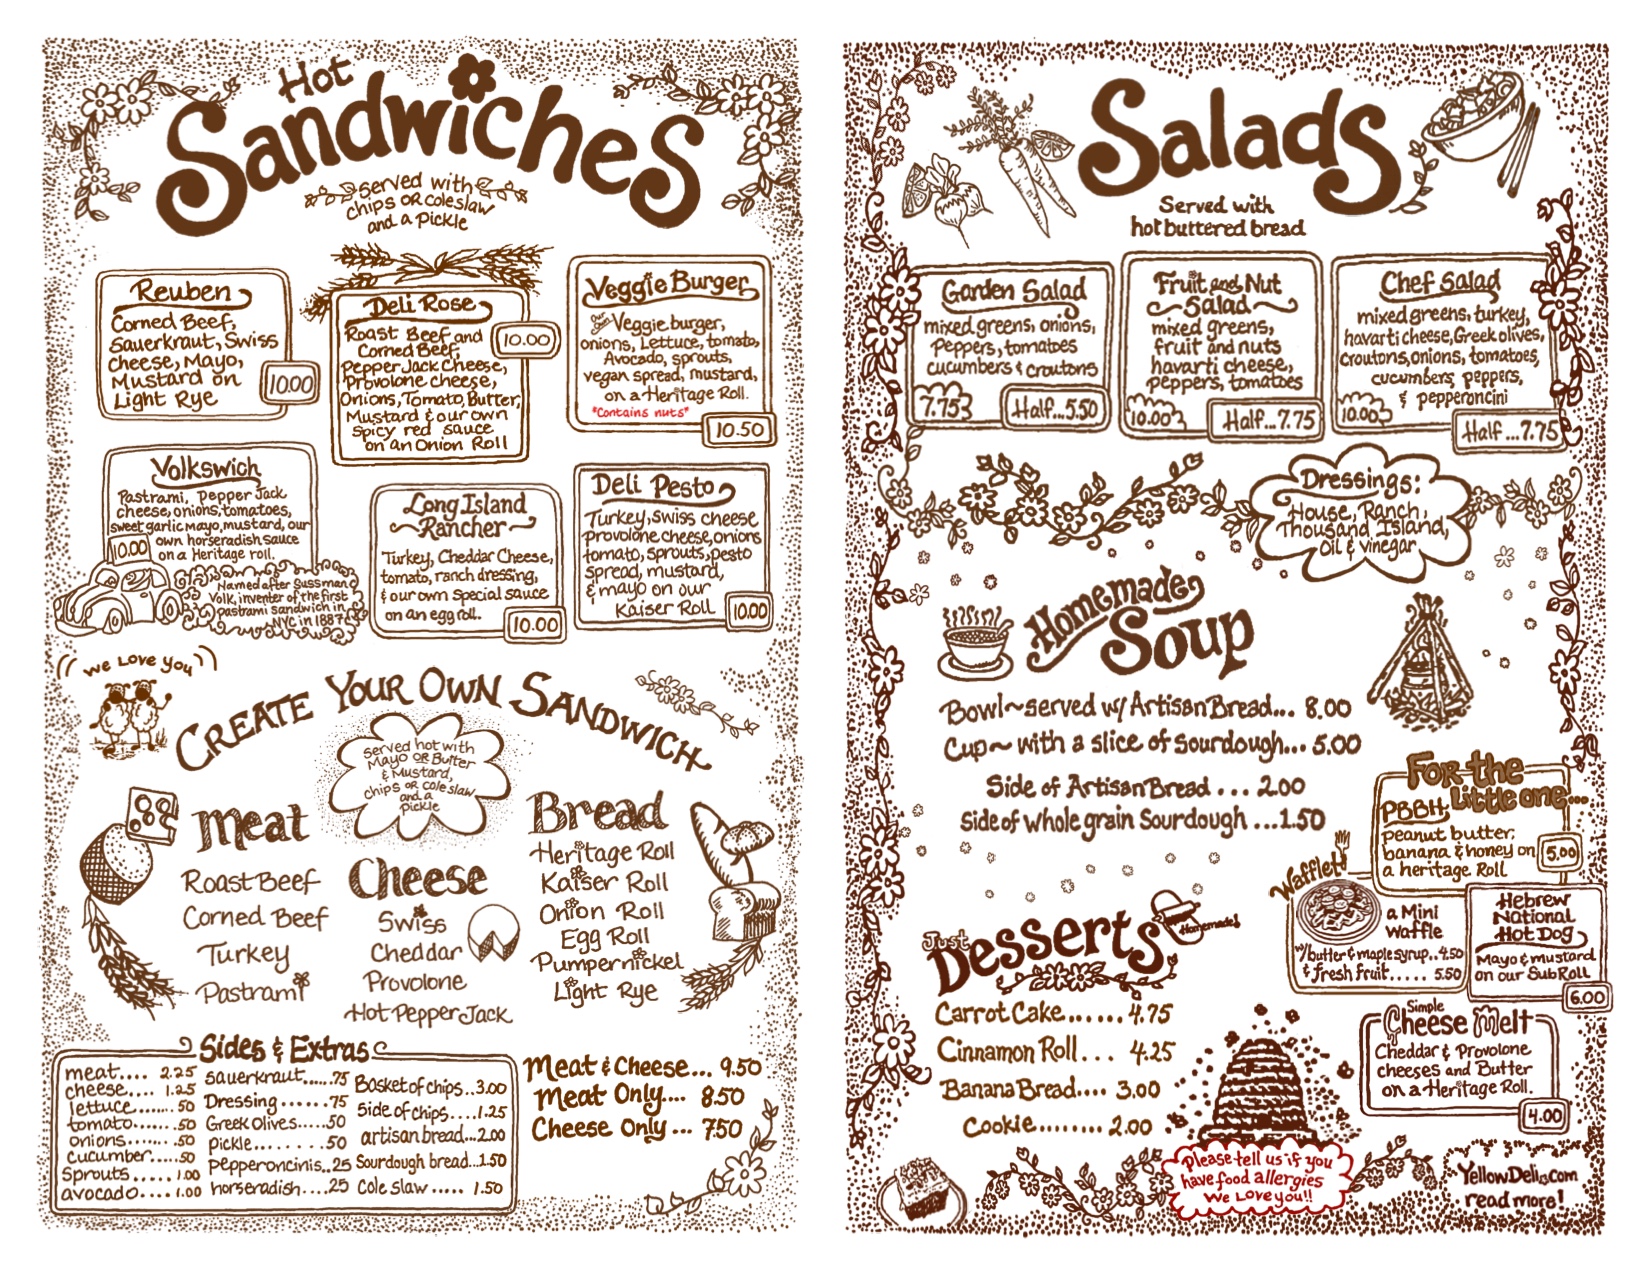 Hot
Sandwiches
Served with
chips OR coleslaw
and a pickle
Reuben
Corned Beef,
Sauerkraut, Swiss
Cheese, Mayo,
Mustard on
Light Rye
10.00
Deli Rose
Roast Beef and
Corned Beef,
Pepper Jack Cheese,
Provolone cheese,
Onions, Tomato, Butter,
Mustard & our own
Spicy red sauce
on an Onion Roll
10.00
Veggie Burger
Our Own Veggie burger,
onions, Lettuce, tomato,
Avocado, sprouts,
vegan spread, mustard,
on a Heritage Roll.
*Contains nuts*
10.50
Volkswich
Pastrami, Pepper Jack
cheese, onions, tomatoes,
sweet garlic mayo, mustard, our
own horseradish sauce
on a Heritage roll.
10.00
Named after Sussman
Volk, inventer of the first
pastrami sandwich in
NYC in 1887
Long Island
Rancher
Turkey, Cheddar Cheese,
tomato, ranch dressing,
& our own special sauce
on an egg roll.
10.00
Deli Pesto
Turkey, Swiss cheese
Provolone cheese, onions
tomato, sprouts, pesto
spread, mustard,
& mayo on our
Kaiser Roll
10.00
We Love you
Create Your Own Sandwich
Served hot with
Mayo OR Butter
& Mustard,
chips OR cole slaw
and a
pickle
Meat
Roast Beef
Corned Beef
Turkey
Pastrami
Cheese
Swiss
Cheddar
Provolone
Hot Pepper Jack
Bread
Heritage Roll
Kaiser Roll
Onion Roll
Egg Roll
Pumpernickel
Light Rye
Sides & Extras
meat.... 2.25
cheese.... 1.25
lettuce....... .50
tomato...... .50
onions....... .50
cucumber..... .50
Sprouts..... 1.00
avocado.... 1.00
sauerkraut......75
Dressing.......75
Greek Olives.....50
pickle........ .50
Pepperoncinis..25
horseradish....25
Basket of chips..3.00
side of chips....1.25
artisan bread...2.00
Sourdough bread...1.50
Cole slaw..... 1.50
Meat & Cheese... 9.50
Meat Only.... 8.50
Cheese Only... 7.50
Salads
Served with
hot buttered bread
Garden Salad
mixed greens, onions,
Peppers, tomatoes
cucumbers & croutons
7.75
Half...5.50
Fruit and Nut
Salad
mixed greens,
fruit and nuts
havarti cheese,
peppers, tomatoes
10.00
Half...7.75
Chef Salad
mixed greens, turkey,
havarti cheese, Greek olives,
croutons, onions, tomatoes,
cucumbers, peppers,
& pepperoncini
10.00
Half...7.75
Dressings:
House, Ranch,
Thousand Island,
Oil & vinegar
Homemade
Soup
Bowl~served w/ Artisan Bread... 8.00
Cup~ with a slice of sourdough... 5.00
Side of Artisan Bread... 2.00
Side of whole grain Sourdough ...1.50
For the
Little one...
PBBH
peanut butter,
banana & honey on
a heritage Roll
5.00
Wafflet!
a Mini
Waffle
w/butter & maple syrup..4.50
& fresh fruit..... 5.50
Hebrew
National
Hot Dog
Mayo & mustard
on our Sub Roll
6.00
Simple
Cheese Melt
Cheddar & Provolone
cheeses and Butter
on a Heritage Roll.
4.00
Just
Desserts
Homemade!
Carrot Cake...... 4.75
Cinnamon Roll... 4.25
Banana Bread.... 3.00
Cookie........ 2.00
Please tell us if you
have food allergies
We Love you!!
YellowDeli.com
read more!